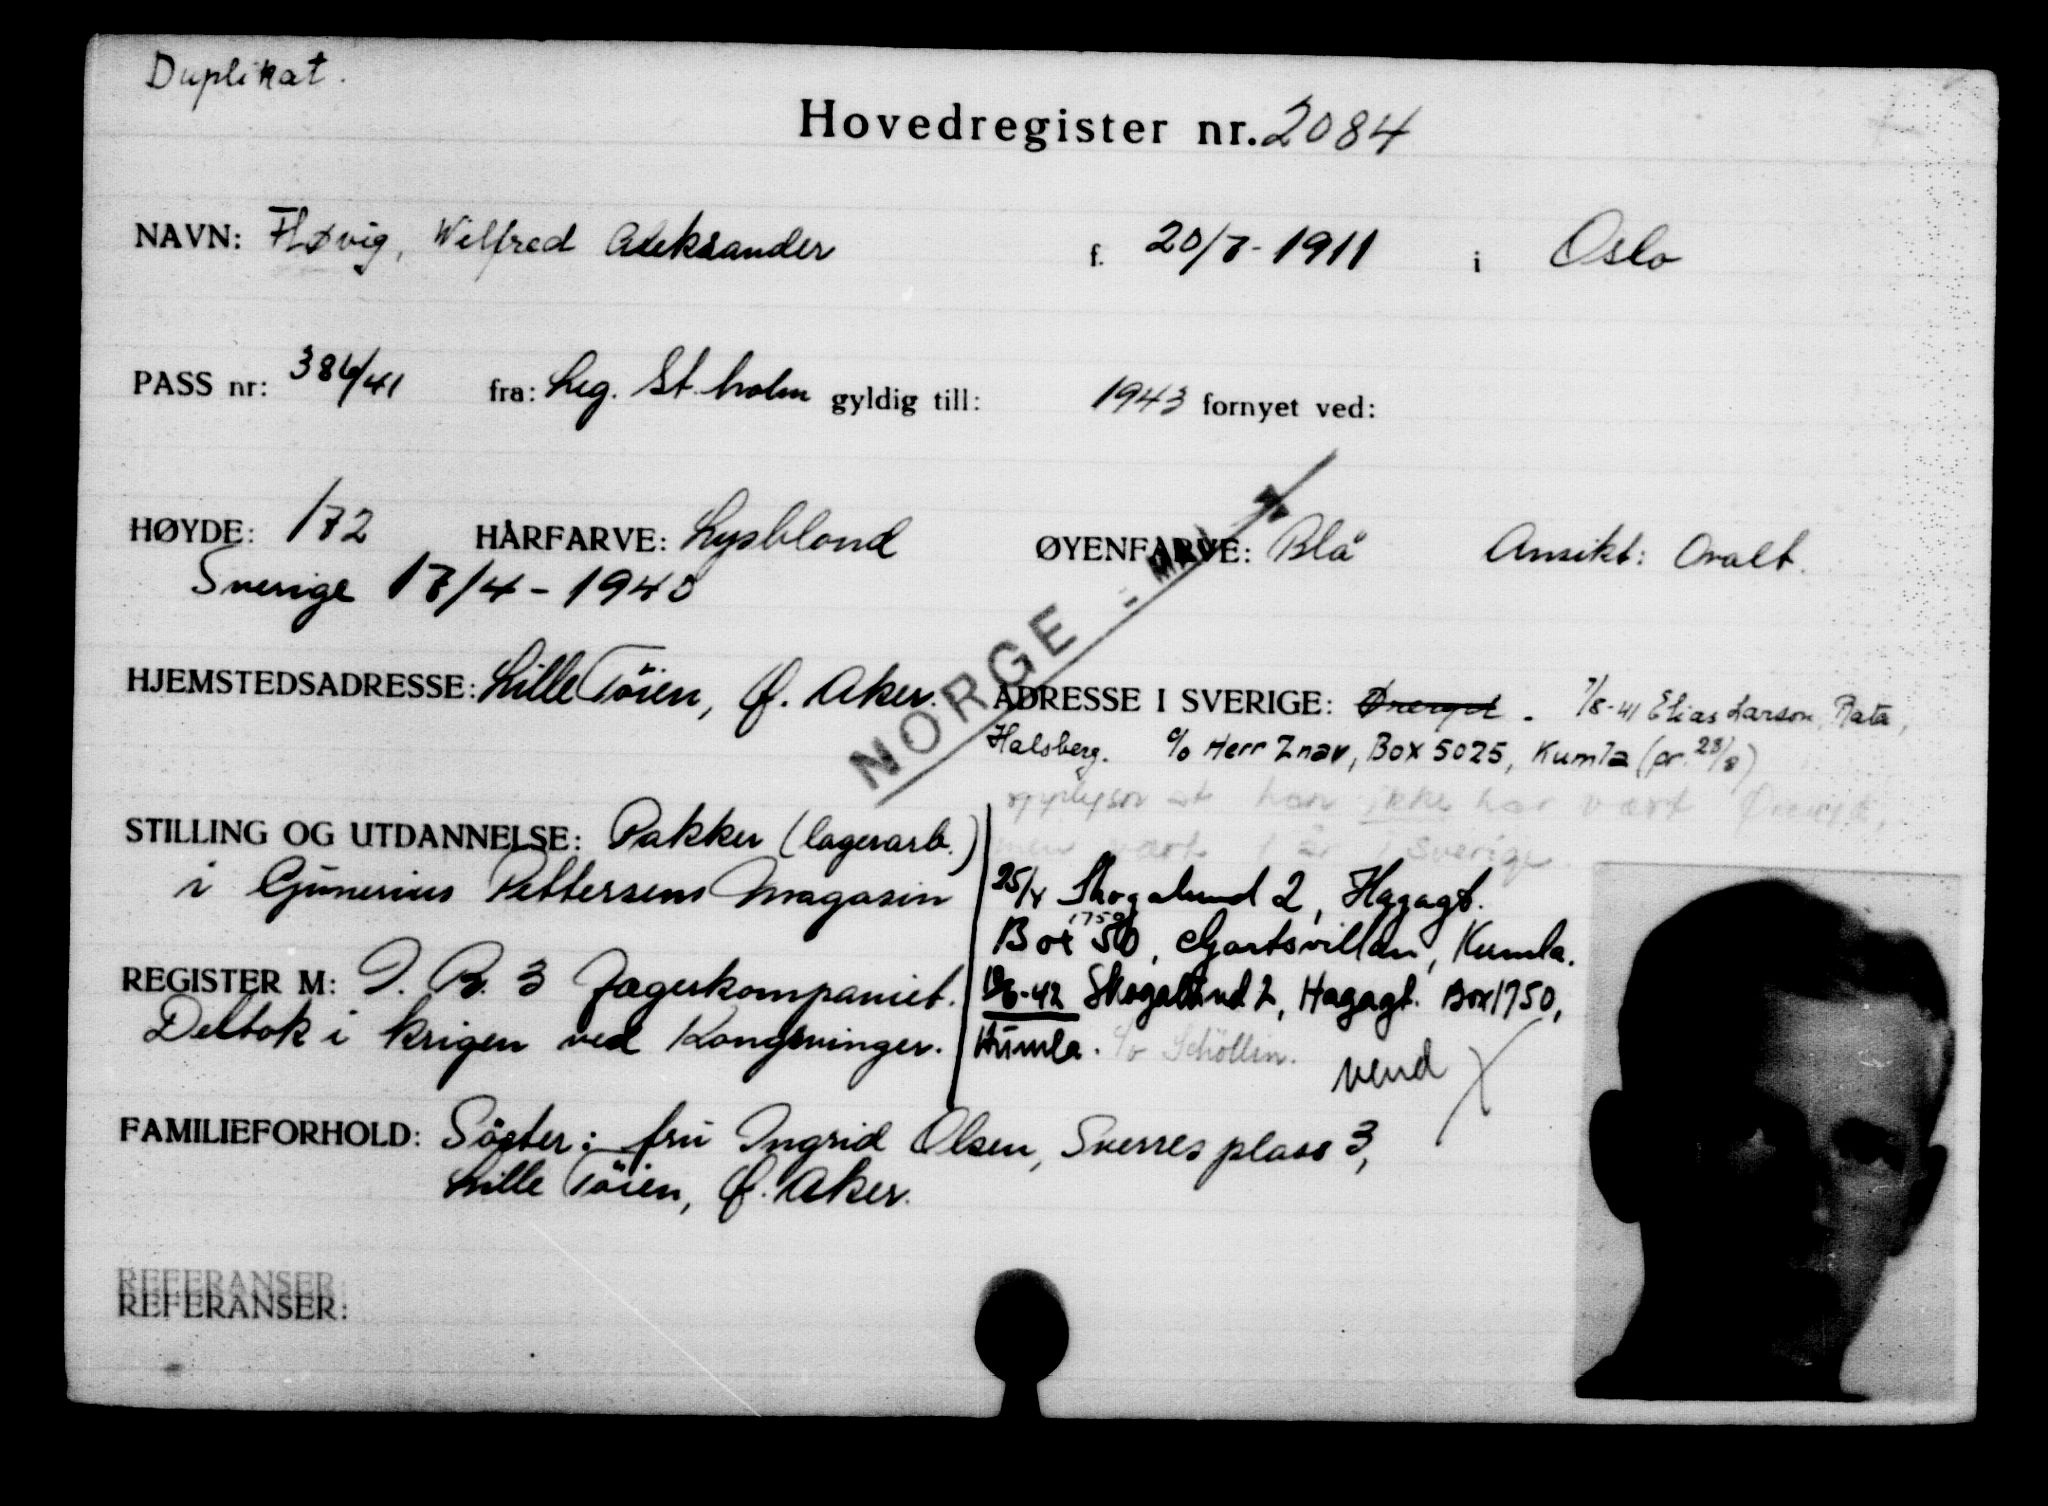 Duplikat.
Hovedregister nr. 2084
NAVN: Fløvig, Wilfred Aleksander f. 20/7-1911 i Oslo
PASS nr: 386/41 fra: Leg. St.holm gyldig till: 1943 fornyet ved:
HØYDE: 172 HÅRFARVE: Lysblond ØYENFARVE: Blå Ansikt: Ovalt.
Sverige 17/4-1940
NORGE
HJEMSTEDSADRESSE: Lille Töien, Ø. Aker. ADRESSE I SVERIGE: 7/8-41 Elias Larson, Rata,
Halsberg. c/o Herr Znav, Box 5025, Kumla (pr. 28/8)
opplyser at han ikke har vært
men vært 1 år i Sverige.
STILLING OG UTDANNELSE: Pakker (lagerarb.)
i Gunerius Pettersens Magasin
25/x Skogalund 2, Hagagt.
Box 50, 1750, Gartsvillan, Kumla.
REGISTER M: I. R. 3 Jægerkompaniet.
Deltok i krigen ved Kongsvinger.
-42 Skogalund 2, Hagagt. Box 1750,
Kumla. c/o Schöllin.
vend
FAMILIEFORHOLD: Söster: fru Ingrid Olsen, Sverres plass 3,
Lille Töien, Ø. Aker.
REFERANSER
REFERANSER: